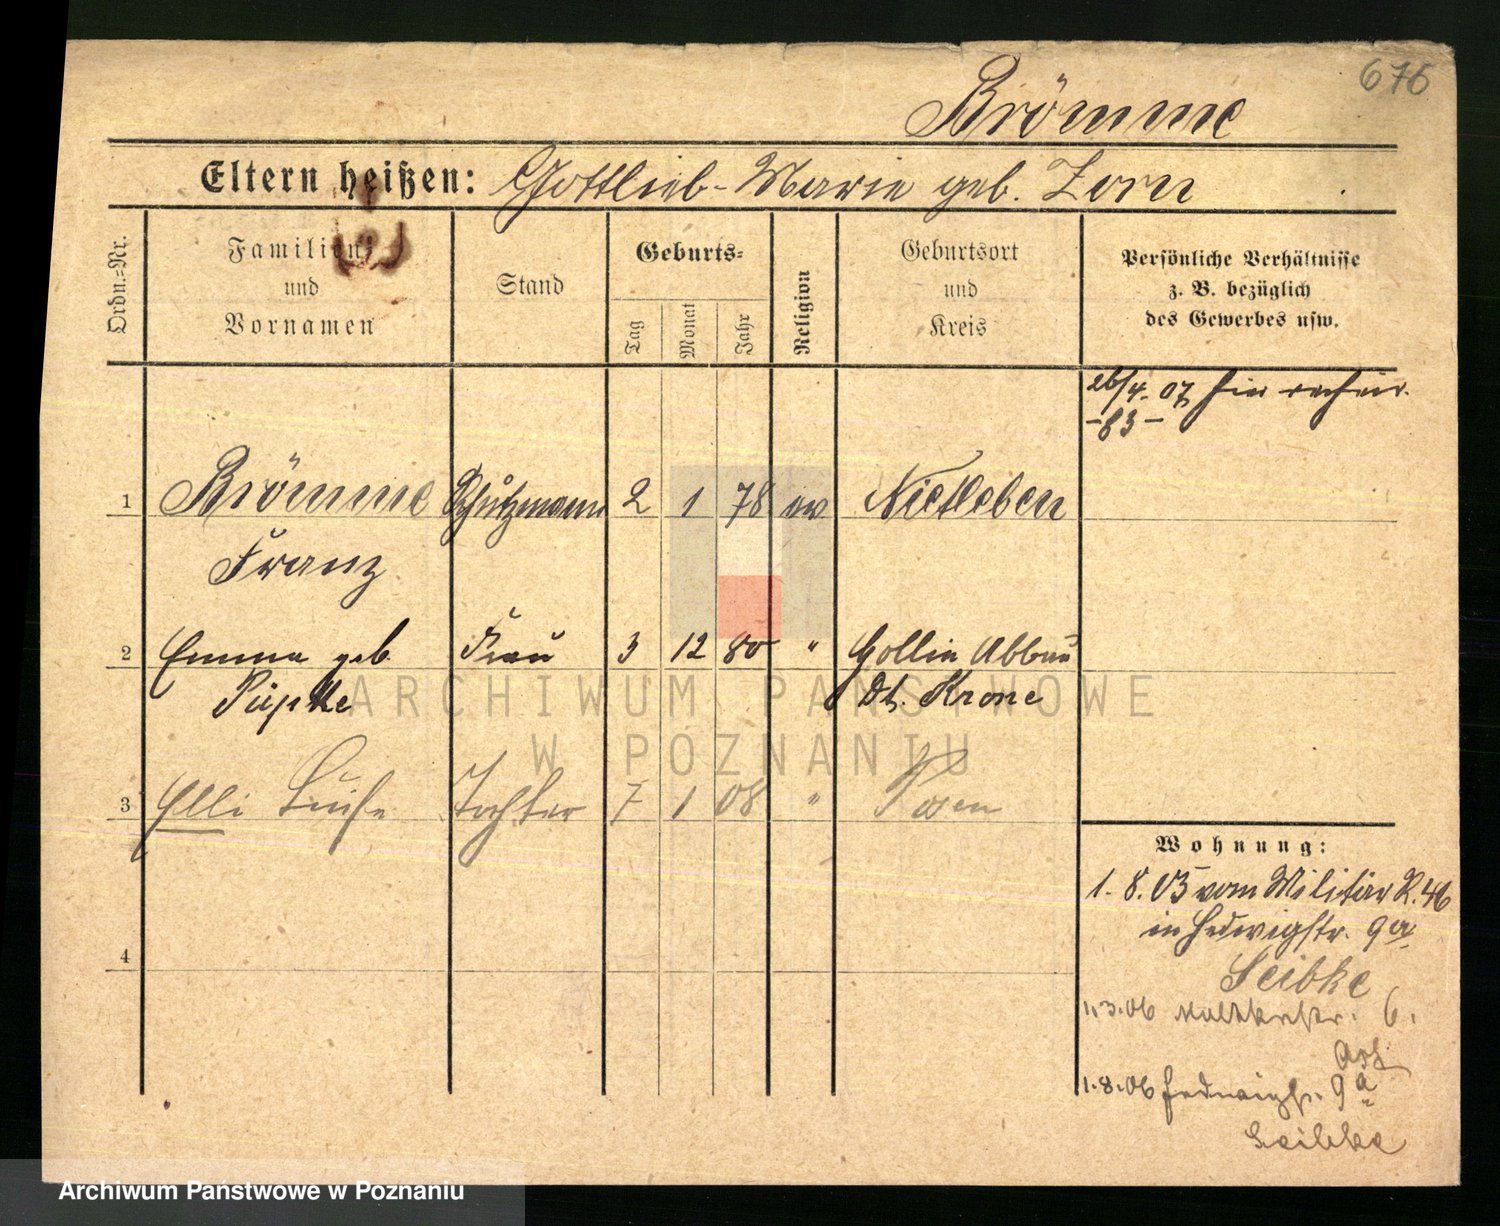 676
Brömme
Eltern heißen: Gottlieb - Marie geb. Zorn
Ordn.=Nr.
Familien=
und
Vornamen
Stand
Geburts=
Tag
Monat
Jahr
Religion
Geburtsort
und
Kreis
Persönliche Verhältnisse
z. B. bezüglich
des Gewerbes usw.
26/4. 07
1 Brömme Schutzmann 2 1 78 ev Nietleben
Franz
2 Emma geb. Frau 3 12 80 " Gollin Abbau
Dt. Krone
3 Elli Luise Tochter 7 1 08 " Posen
4
Wohnung:
1. 8. 05 vom Militär R. 46
in Hedwigstr. 9a
Leibke
1.3.06 6.
1.8.06 Hedwigstr. 9a
Leibke
ARCHIWUM PAŃSTWOWE
W POZNANIU
Archiwum Państwowe w Poznaniu